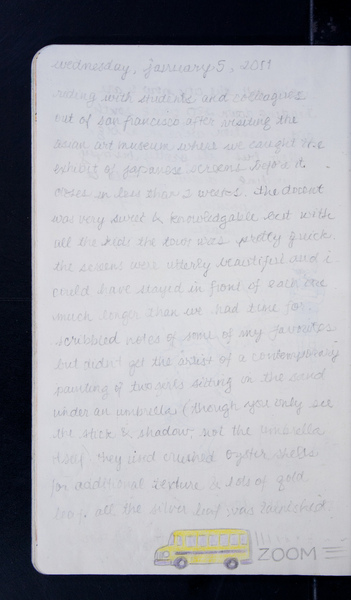 wednesday, january 5, 2011
riding with students and colleagues
out of san francisco after visiting the
asian art museum where we caught the
exhibit of japanese screens before it
closes in less than 2 weeks. the docent
was very sweet & knowledgable but with
all the kids the tour was pretty quick.
the screens were utterly beautiful and i
could have stayed in front of each one
much longer than we had time for
scribbled notes of some of my favorites
but didn't get the artist of a contemporary
painting of two girls sitting in the sand
under an umbrella (though you only see
the stick & shadow, not the umbrella
itself) they used crushed oyster shells
for additional texture & lots of gold
leaf. all the silver leaf was tarnished.
ZOOM